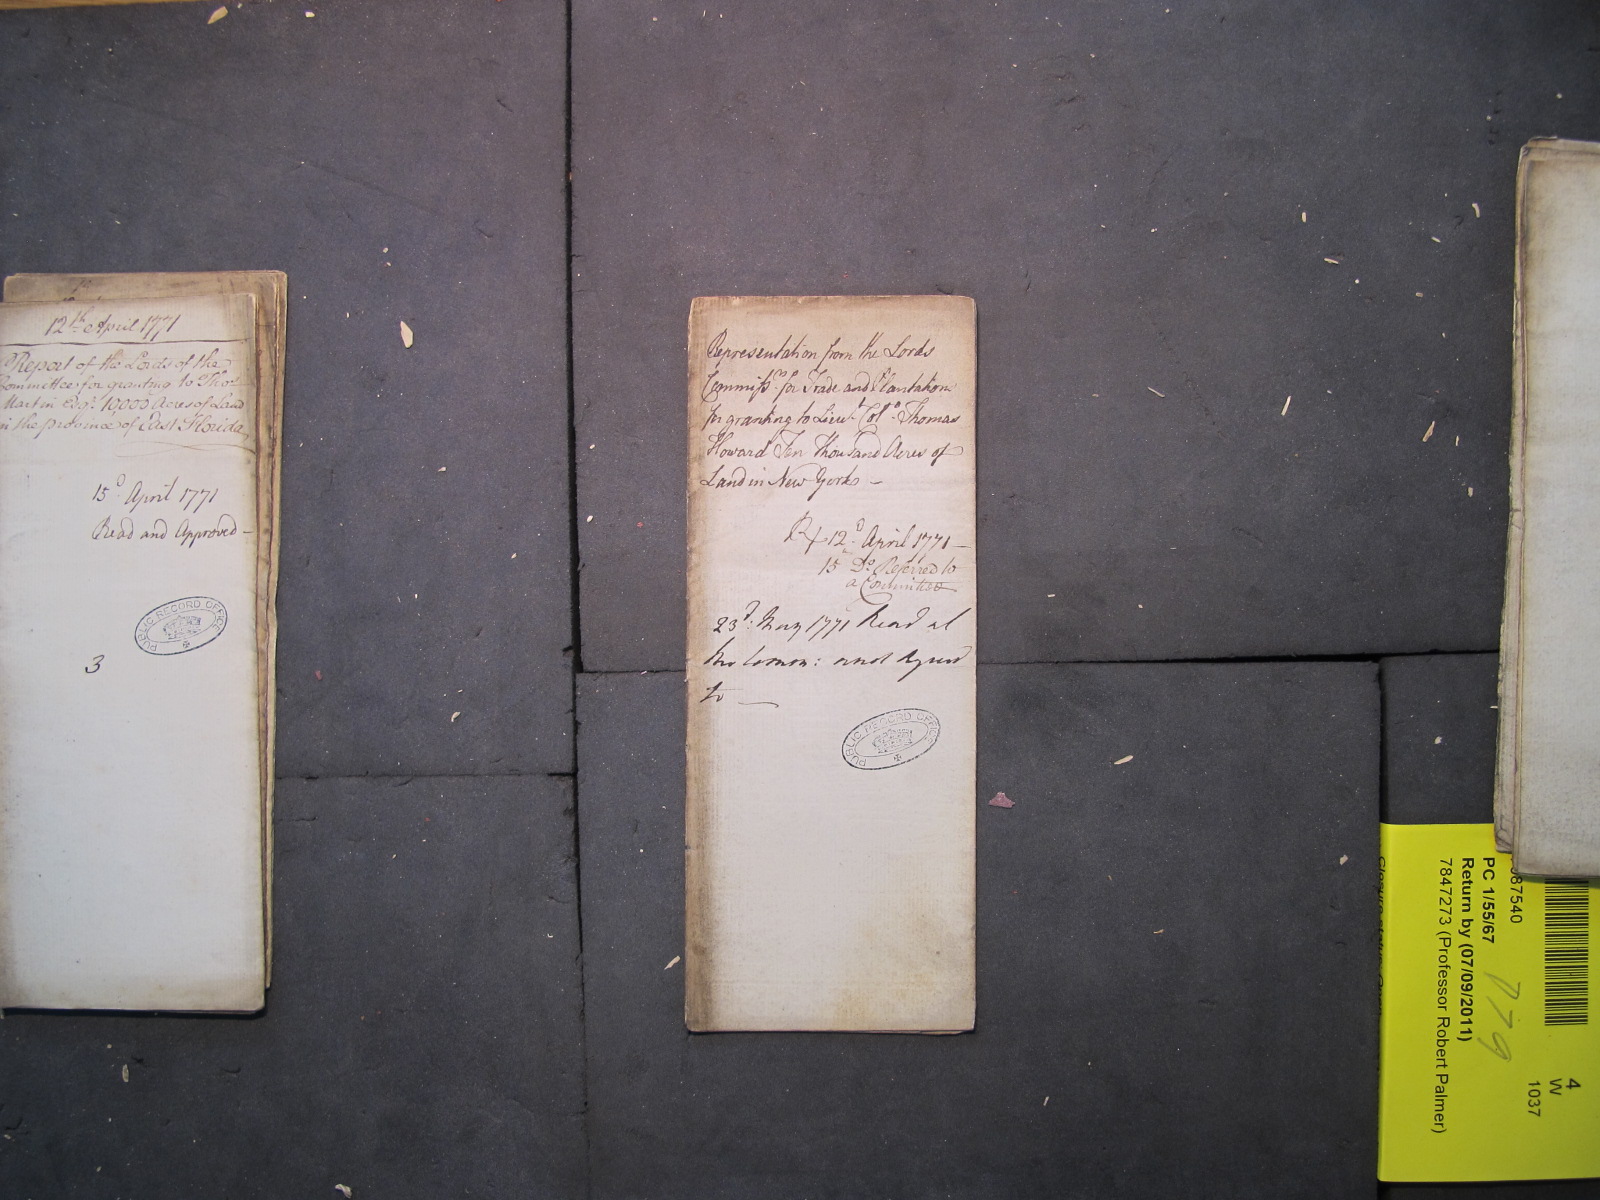 12th April 1771
Report of the Lords of the
Committee for granting to Thos.
Martin Esqr. 10,000 Acres of Land
in the province of East Florida
15th April 1771
Read and Approved -
PUBLIC RECORD OFFICE
3
Representation from the Lords
Commissrs. for Trade and Plantations
for granting to Lieut. Colo. Thomas
Howard Ten Thousand Acres of
Land in New York -
Rx 12th April 1771 -
15 Do. Referred to
a Committee
23d. May 1771 Read at
the Comm: and Agreed
to -
PUBLIC RECORD OFFICE
87540
PC 1/55/67
Return by (07/09/2011)
7847273 (Professor Robert Palmer)
4
W
1037